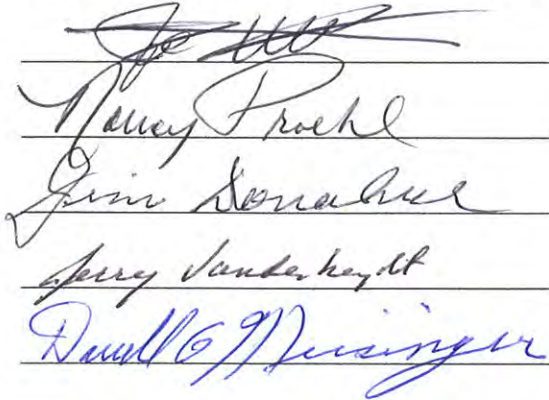 Joe
Nancy Proehl
Jim Donahue
Jerry Vanderheydt
Darell G Meisinger